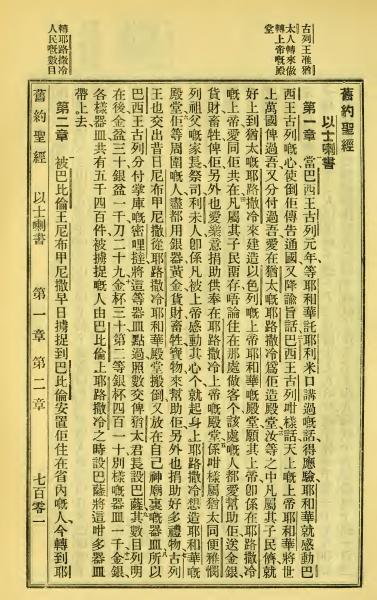 古列王准猶
太人轉來做
轉上帝嘅殿
堂
轉耶路撒冷
人民嘅數目
舊約聖經
以士喇書
第一章 當巴西王古列元年、等耶和華託耶利米口講過嘅話得應驗、耶和華就感動巴
西王古列嘅心、使倒佢傳告通國又降諭旨話、巴西王古列咁樣話、天上嘅上帝耶和華將世
上萬國俾過吾、又分付過吾愛在猶太嘅耶路撒冷爲佢造殿堂、汝等之中凡屬其子民儕就
好上到猶太嘅耶路撒冷、來建造以色列嘅上帝耶和華嘅殿堂、願其上帝卽係在耶路撒冷
嘅上帝愛同佢共在、凡屬其子民畱存唔論住在那處做客个該處嘅人都愛幫助佢、送金銀、
貨財畜牲俾佢、另外也愛樂意捐助供奉在耶路撒冷上帝嘅殿堂、係咁樣屬猶太同便雅憫
列祖父嘅家長祭司利未人、卽係凡被上帝感動其心个就起身上耶路撒冷想造耶和華嘅
殿堂、佢等周圍嘅人盡都用銀器黃金貨財畜牲寶物來幫助佢、另外也捐助好多禮物、古列
王也交出昔日尼布甲尼撒從耶路撒冷耶和華殿堂搬倒又放在自己神廟裏嘅器皿、所以
巴西王古列分付掌庫嘅密哩撻將這等器皿點過照數交俾猶太君長設巴薩、其數目列明
在後、金盆三十、銀盆一千、刀二十九、金杯三十、第二等銀杯四百一十、別樣嘅器皿一千、金銀
各樣器皿共有五千四百件、被擄捉嘅人由巴比倫上耶路撒冷之時設巴薩將這咁多器皿
帶上去、
第二章 被巴比倫王尼布甲尼撒早日擄捉到巴比倫安置佢住在省內嘅人今轉到耶
舊約聖經 以士喇書 第一章 第二章 七百零一